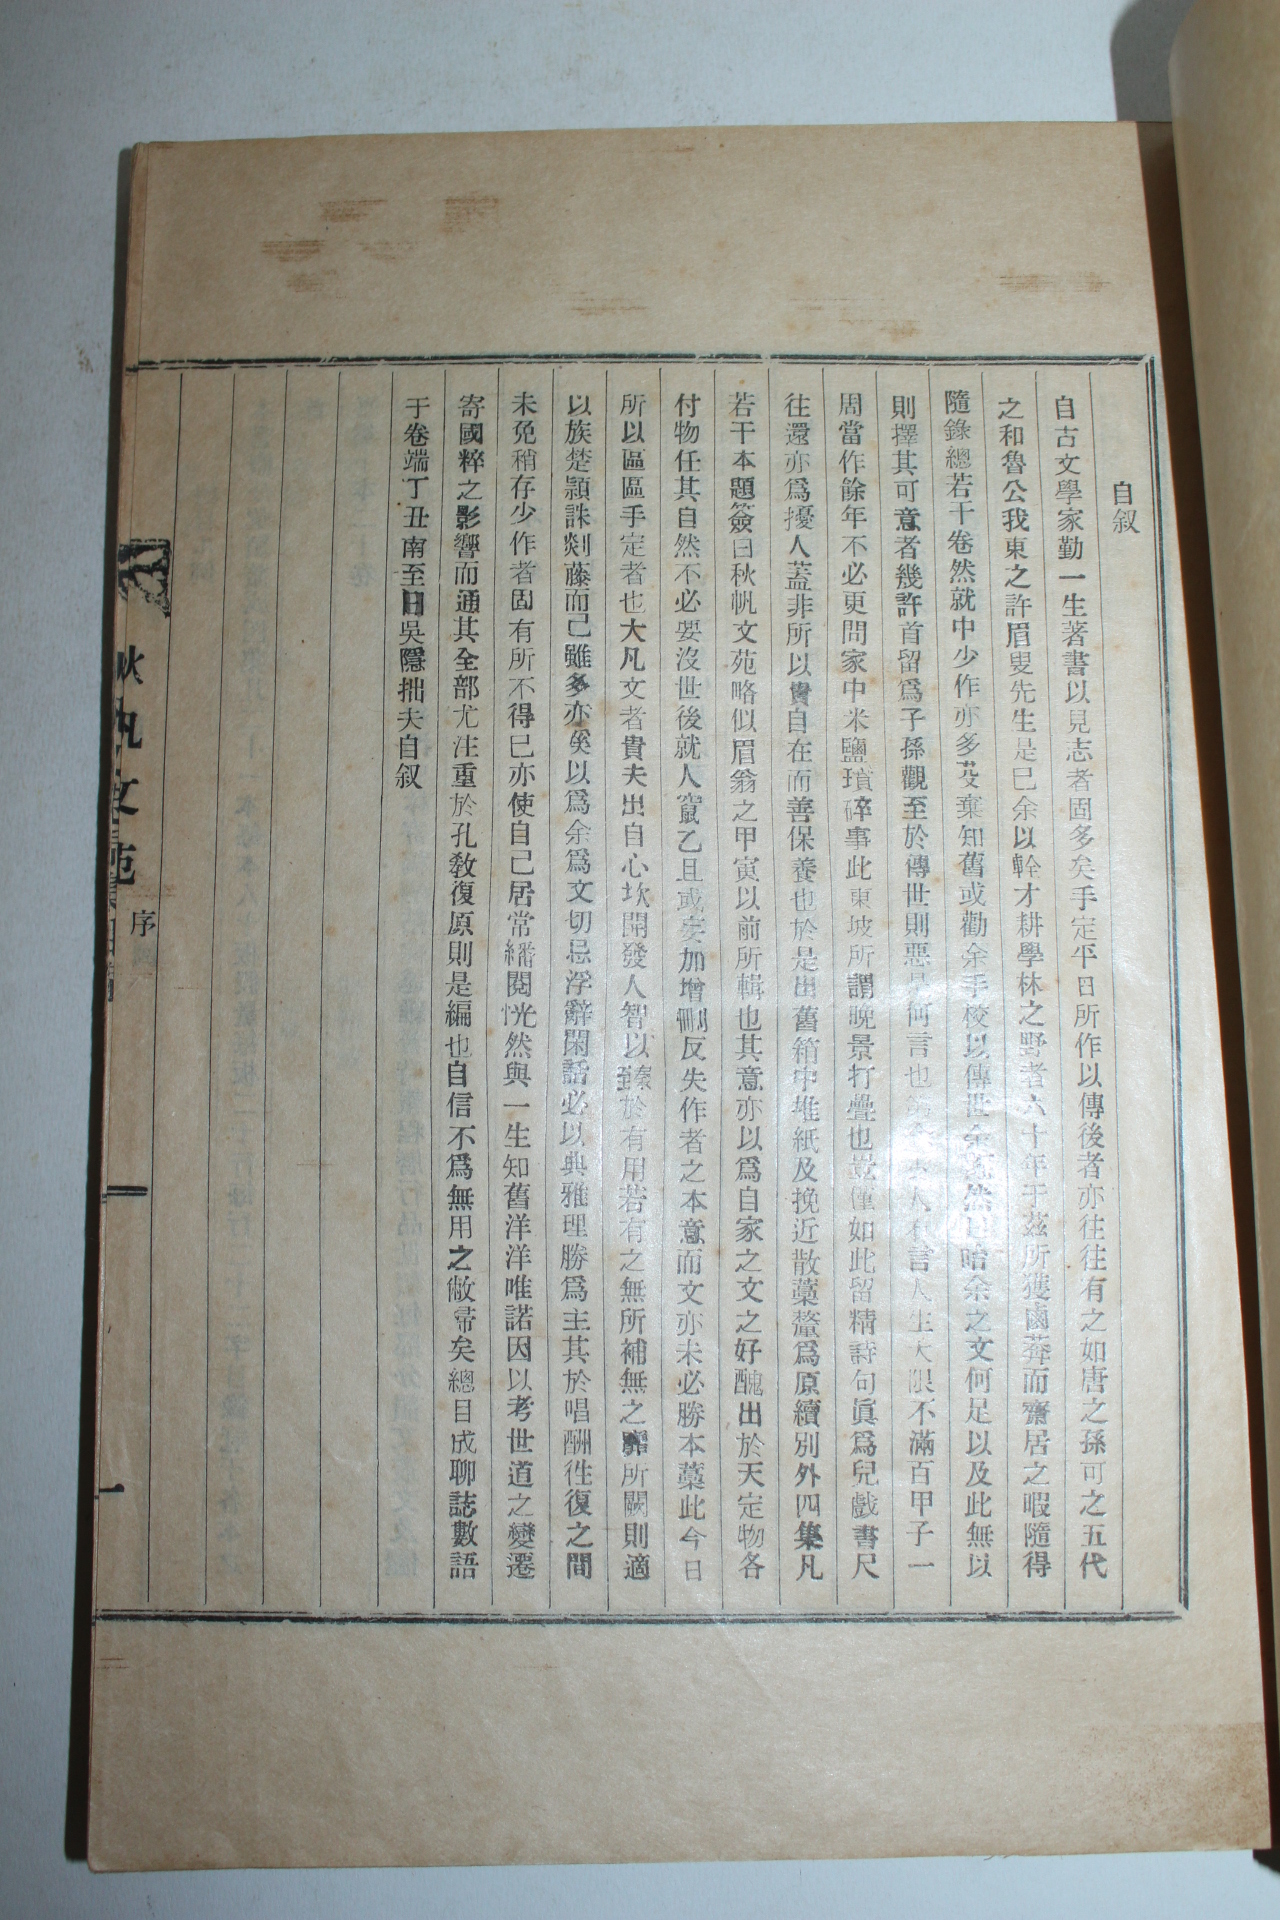 自叙
自古文學家勤一生著書以見志者固多矣手定平日所作以傳後者亦往往有之如唐之孫可之五代
之和魯公我東之許眉叟先生是已余以輇才耕學林之野者六十年于茲所獲鹵莽而齋居之暇隨得
隨錄總若干卷然就中少作亦多芟棄知舊或勸余手校以傳世余 然曰 余之文何足以及此無以
則擇其可意者幾許首留爲子孫觀至於傳世則惡是何言也 人有言人生大限不滿百甲子一
周當作餘年不必更問家中米鹽瑣碎事此東坡所謂晩景打疊也豈僅如此留精詩句眞爲兒戲書尺
往還亦爲擾人蓋非所以賚自在而善保養也於是出舊箱中堆紙及挽近散藁釐爲原續別外四集凡
若干本題簽曰秋帆文苑略似眉翁之甲寅以前所輯也其意亦以爲自家之文之好醜出於天定物各
付物任其自然不必要沒世後就人竄乙且或妄加增刪反失作者之本意而文亦未必勝本藁此今日
所以區區手定者也大凡文者貴夫出自心坎開發人智以臻於有用若有之無所補無之靡所闕則適
以族楚頴誅剡藤而已雖多亦奚以爲余爲文切忌浮辭閑話必以典雅理勝爲主其於唱酬徃復之間
未免稍存少作者固有所不得已亦使自己居常繙閱恍然與一生知舊洋洋唯諾因以考世道之變遷
寄國粹之影響而通其全部尤注重於孔敎復原則是編也自信不爲無用之敝帚矣總目成聊誌數語
于卷端丁丑南至日吳隱拙夫自叙
秋帆文苑 序 一